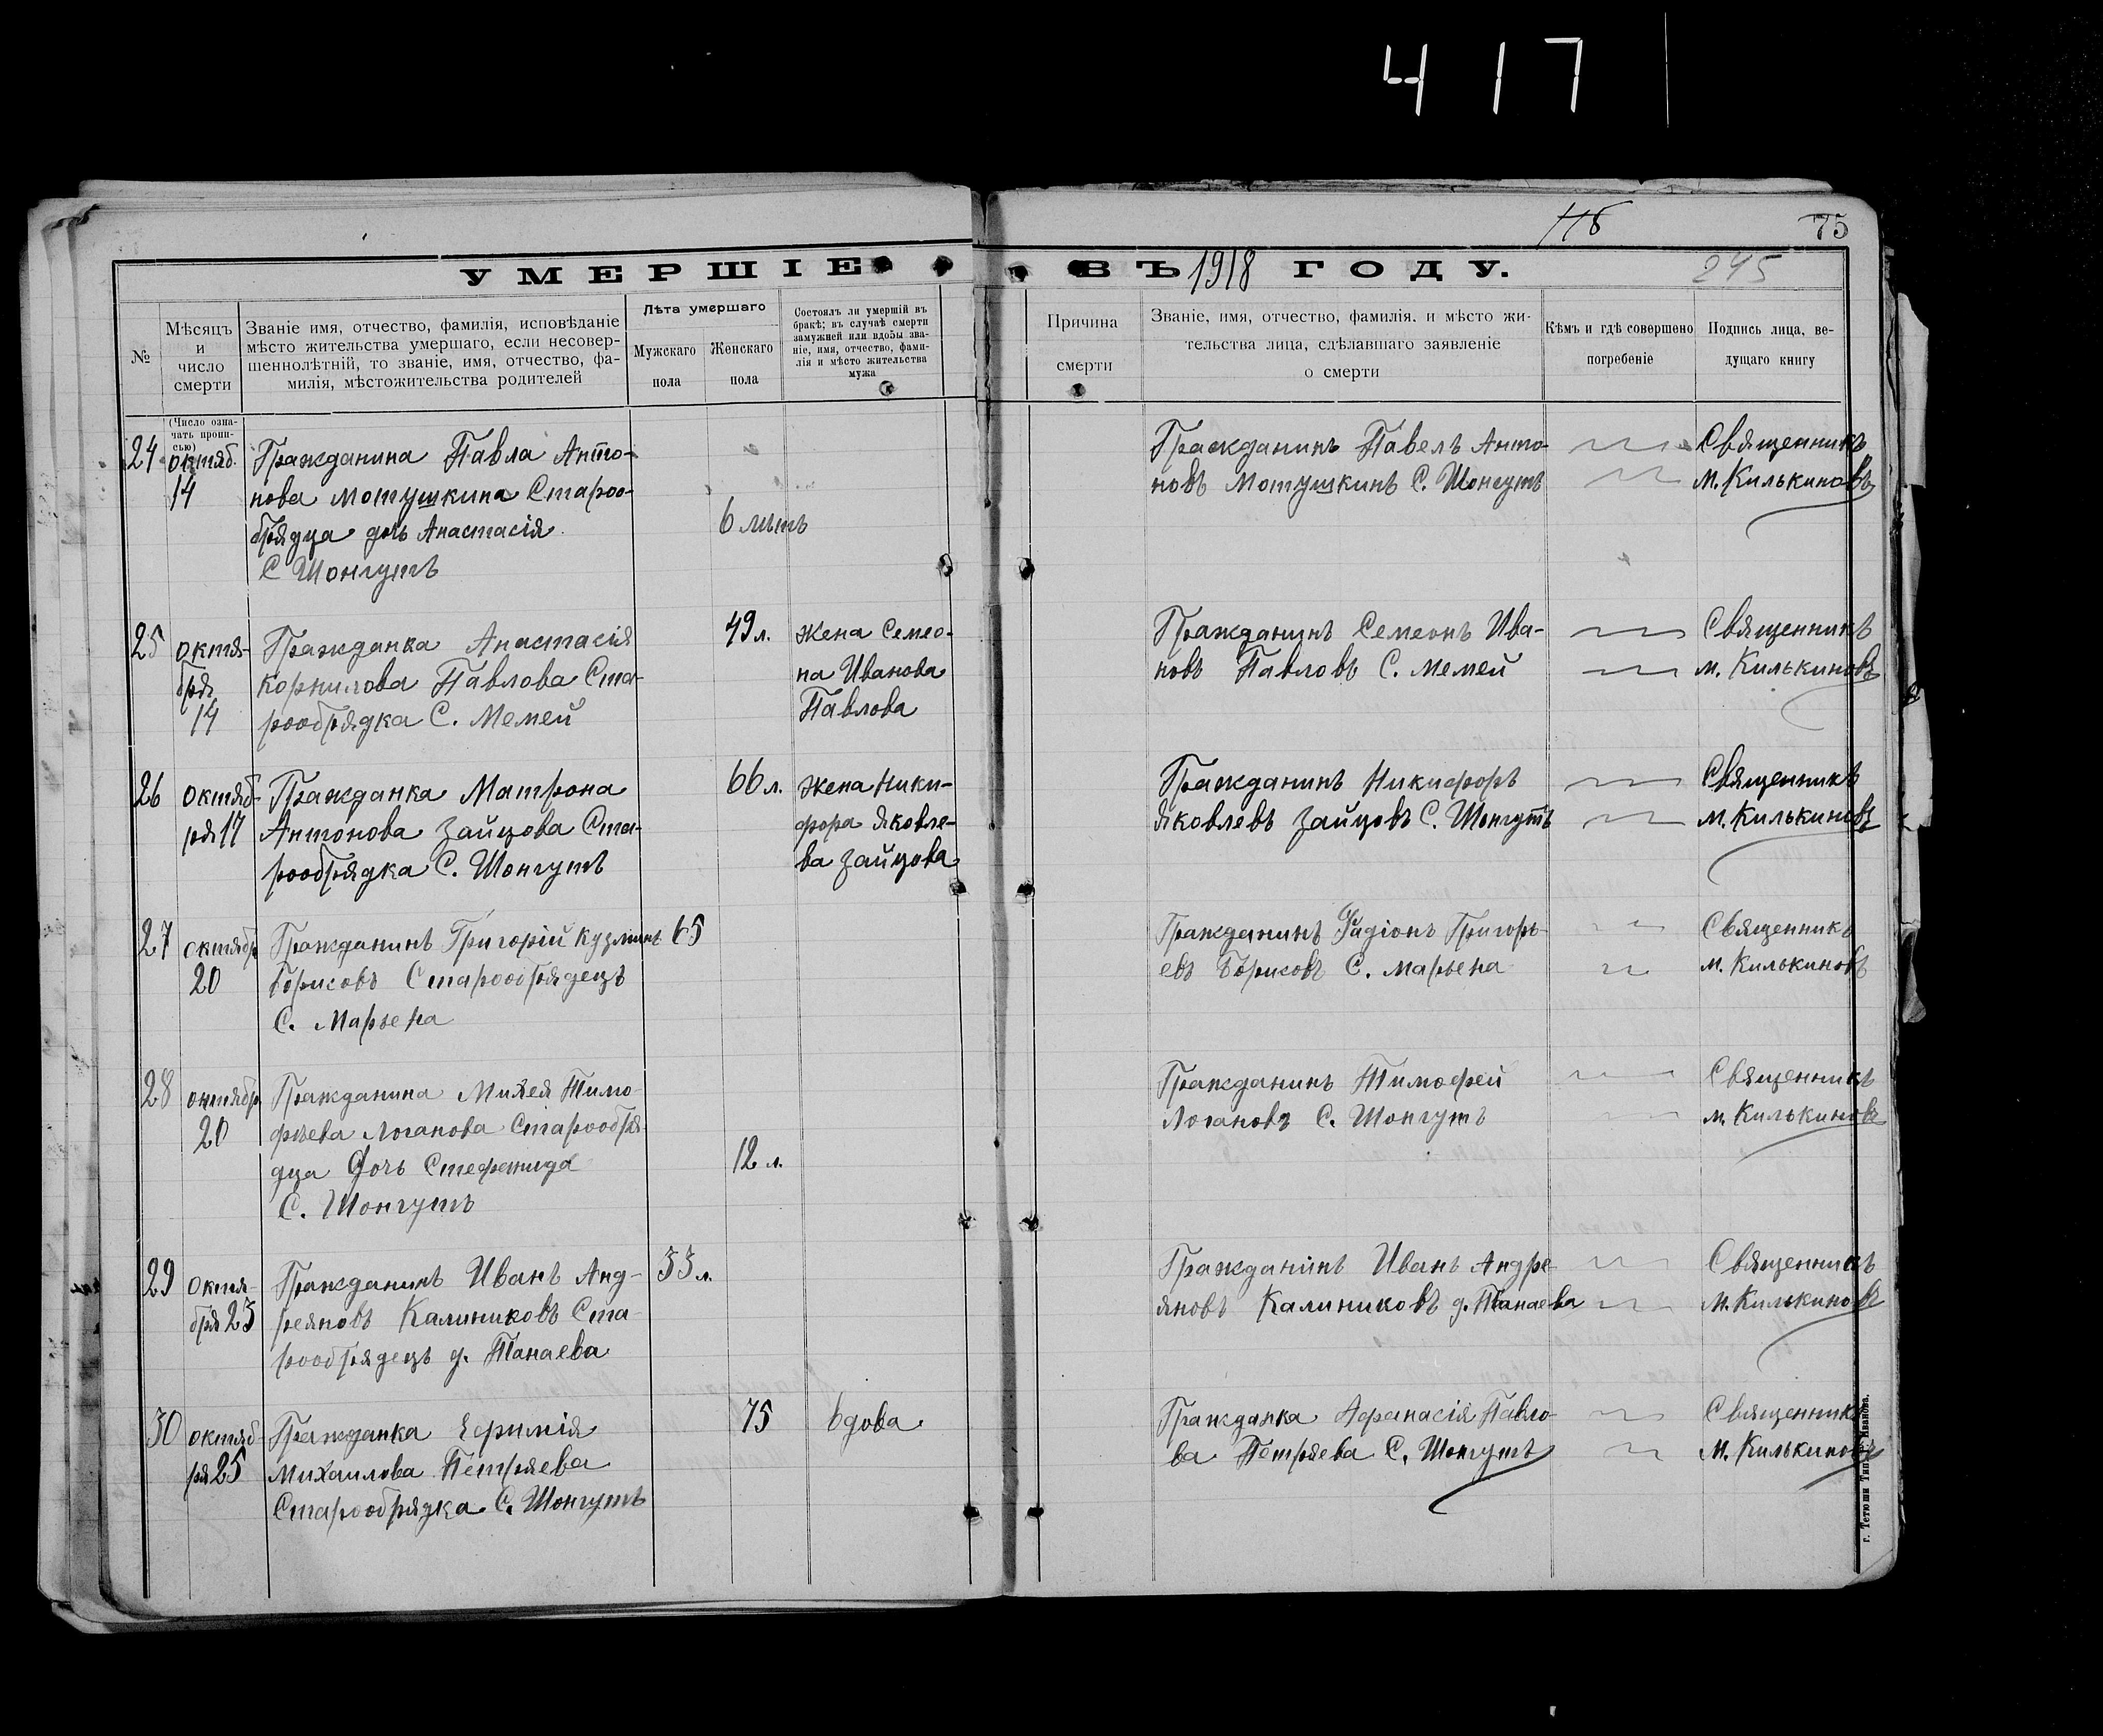 417
116
75
УМЕРШІЕ ВЪ 1918 ГОДУ.
245
№
Мѣсяцъ
и
число
смерти
Званіе имя, отчество, фамилія, исповѣданіе
мѣсто жительства умершаго, если несовер-
шеннолѣтній, то званіе, имя, отчество, фа-
милія, мѣстожительства родителей
Лѣта умершаго
Мужскаго
пола
Женскаго
пола
Состоялъ ли умершій въ
бракѣ; въ случаѣ смерти
замужней или вдовы зва-
ніе, имя, отчество, фами-
лія и мѣсто жительства
мужа
Причина
смерти
Званіе, имя, отчество, фамилія, и мѣсто жи-
тельства лица, сдѣлавшаго заявленіе
о смерти
Кѣмъ и гдѣ совершено
погребеніе
Подпись лица, ве-
дущаго книгу
(Число озна-
чать пропи-
сью)
24
октяб.
14
Гражданина Павла Анто-
нова Мотушкина Староо-
брядца дочь Анастасія
С Шонгутъ
6 лѣтъ
Гражданинъ Павелъ Анто-
новъ Мотушкинъ С. Шонгутъ
Священникъ
М. Килькиновъ
25
октя-
бря
14
Гражданка Анастасія
Корнилова Павлова Ста-
рообрядка С. Мемей
49 л.
Жена Семео-
на Иванова
Павлова
Гражданинъ Семеонъ Ива-
новъ Павловъ С. Мемей
Священникъ
М. Килькиновъ
26
октяб-
ря 17
Гражданка Матрона
Антонова Зайцова Ста-
рообрядка С. Шонгутъ
66 л.
Жена Ники-
фора Яковле-
ва Зайцова
Гражданинъ Никифоръ
Яковлевъ Зайцовъ С. Шонгутъ
Священникъ
М. Килькиновъ
27
октябр
20
Гражданинъ Григорій Кузминъ
Борисовъ Старообрядецъ
С. Марьена
65
Гражданинъ Радіонъ Григорь-
евъ Борисовъ С. Марьена
Священникъ
М. Килькиновъ
28
октябр
20
Гражданина Михея Тимо-
фѣева Логанова Старообря-
дца Дочь Стефанида
С. Шонгутъ
12 л.
Гражданинъ Тимофей
Логановъ С. Шонгутъ
Священникъ
М. Килькиновъ
29
октя-
бря 23
Гражданинъ Иванъ Анд-
реяновъ Калиниковъ Ста-
рообрядецъ д. Танаева
33 л.
Гражданинъ Иванъ Андре-
яновъ Калиниковъ д. Танаева
Священникъ
М. Килькиновъ
30
октяб-
ря 25
Гражданка Ефимія
Михаилова Петряева
Старообрядка С. Шонгутъ
75
вдова
Гражданка Афанасія Павло-
ва Петряева С. Шонгутъ
Священникъ
М. Килькиновъ